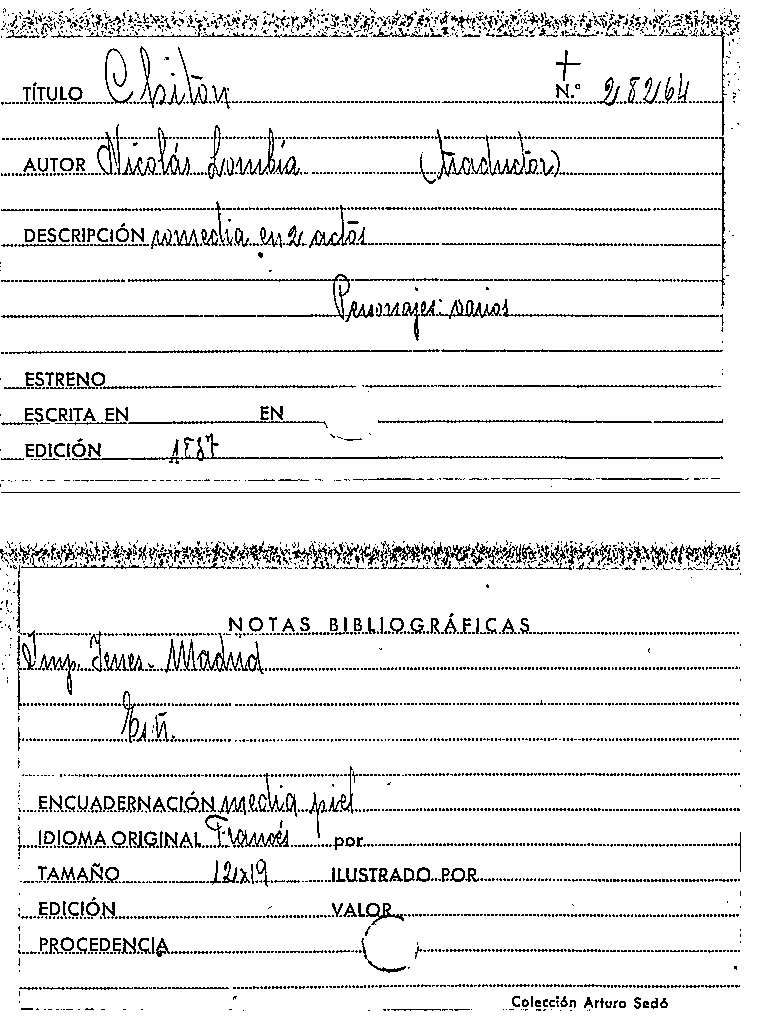 TÍTULO Chitón N.º 28264
AUTOR Nicolás Lombía (traductor)
DESCRIPCIÓN comedia en 2 actos
Personajes: varios
ESTRENO
ESCRITA EN EN
EDICIÓN
NOTAS BIBLIOGRÁFICAS
Imp. Yenes - Madrid
ENCUADERNACIÓN media piel
IDIOMA ORIGINAL Francés por
TAMAÑO 12x19 ILUSTRADO POR
EDICIÓN VALOR
PROCEDENCIA
Colección Arturo Sedó